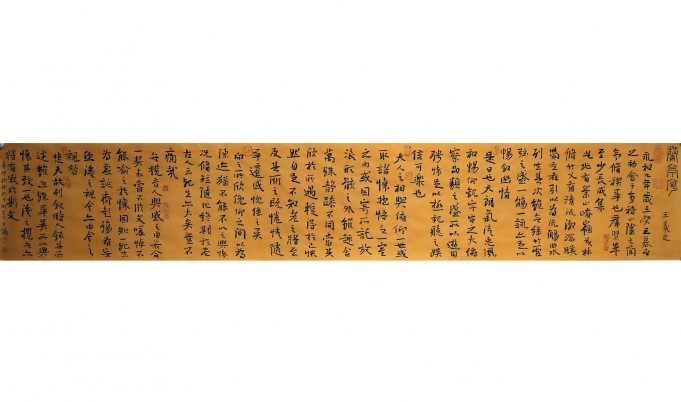 蘭亭序
王羲之
永和九年歲在癸丑暮春
之初會于會稽山陰之蘭
亭脩禊事也群賢畢
至少長咸集
此地有崇山峻嶺茂林
脩竹又有清流激湍映
帶左右引以為流觴曲水
列坐其次雖無絲竹管
弦之盛一觴一詠亦足以
暢敘幽情
是日也天朗氣清惠風
和暢仰觀宇宙之大俯
察品類之盛所以遊目
騁懷足以極視聽之娛
信可樂也
夫人之相與俯仰一世或
取諸懷抱悟言一室
之內或因寄所託放
浪形骸之外雖趣舍
萬殊靜躁不同當其
欣於所遇暫得於己快
然自足不知老之將至
及其所之既惓情隨
事遷感慨係之矣
向之所欣俛仰之間以為
陳迹猶不能不以之興懷
況脩短隨化終期於盡
古人云死生亦大矣豈不
痛哉
每攬昔人興感之由若合
一契未嘗不臨文嗟悼不
能喻之於懷固知一死生
為虛誕齊彭殤為妄作
後之視今亦由今之
視昔
悲夫故列敘時人錄其所
述雖世殊事異所以興
懷其致一也後之攬者亦
將有感於斯文